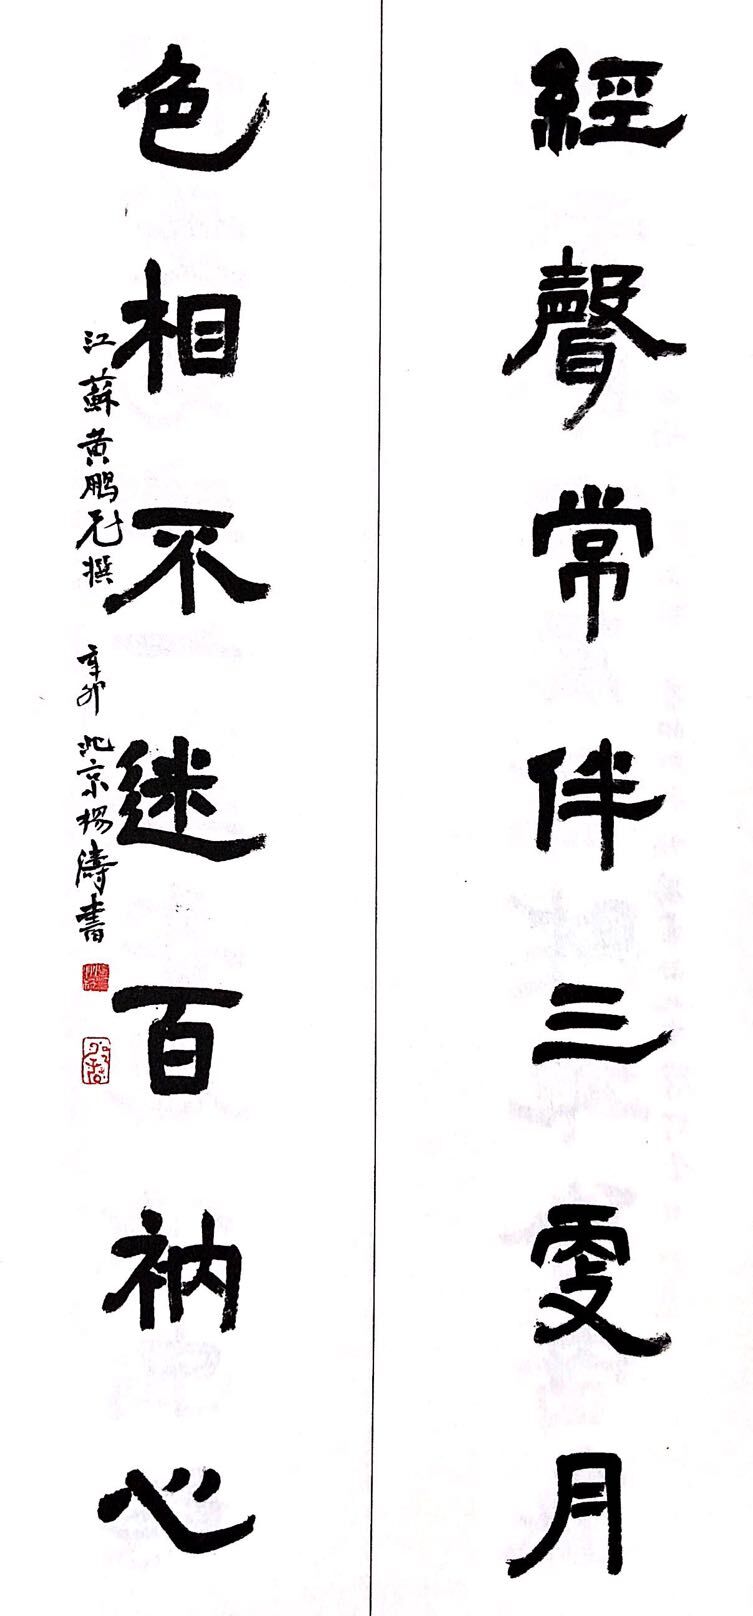 經聲常伴三更月
色相不迷百衲心
江蘇黄鹏撰 辛卯 北京楊濤書